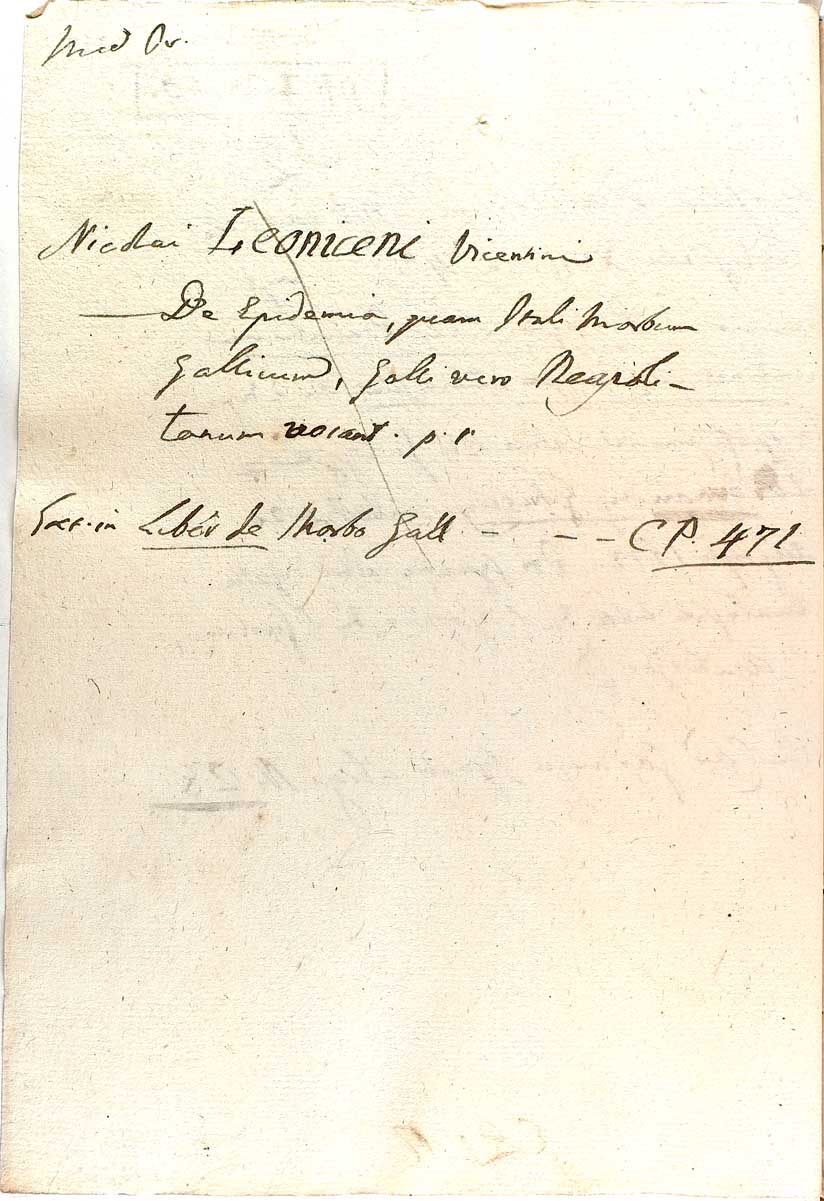 Med Pr.
Nicolai Leoniceni Vicentini
— De Epidemia, quam Itali Morbum
Gallicum, Galli vero Neapoli-
tanum vocant. p. 1.
in Liber de Morbo Gall - - - - CP. 471